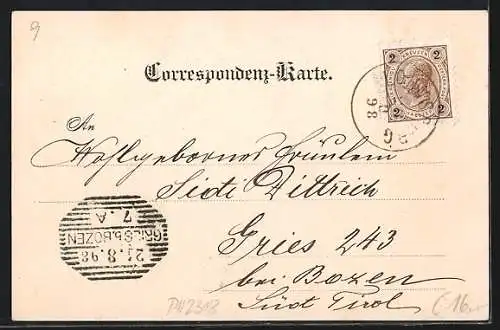 Correspondenz-Karte.
2 KREUZER 2
2 2
98
An
Hochgebornes Fräulein
Sidi Dittrich
Gries 243
bei Bozen
Süd Tirol
GRIES b. BOZEN
21.8.98
7.A
PW2313
€16.-